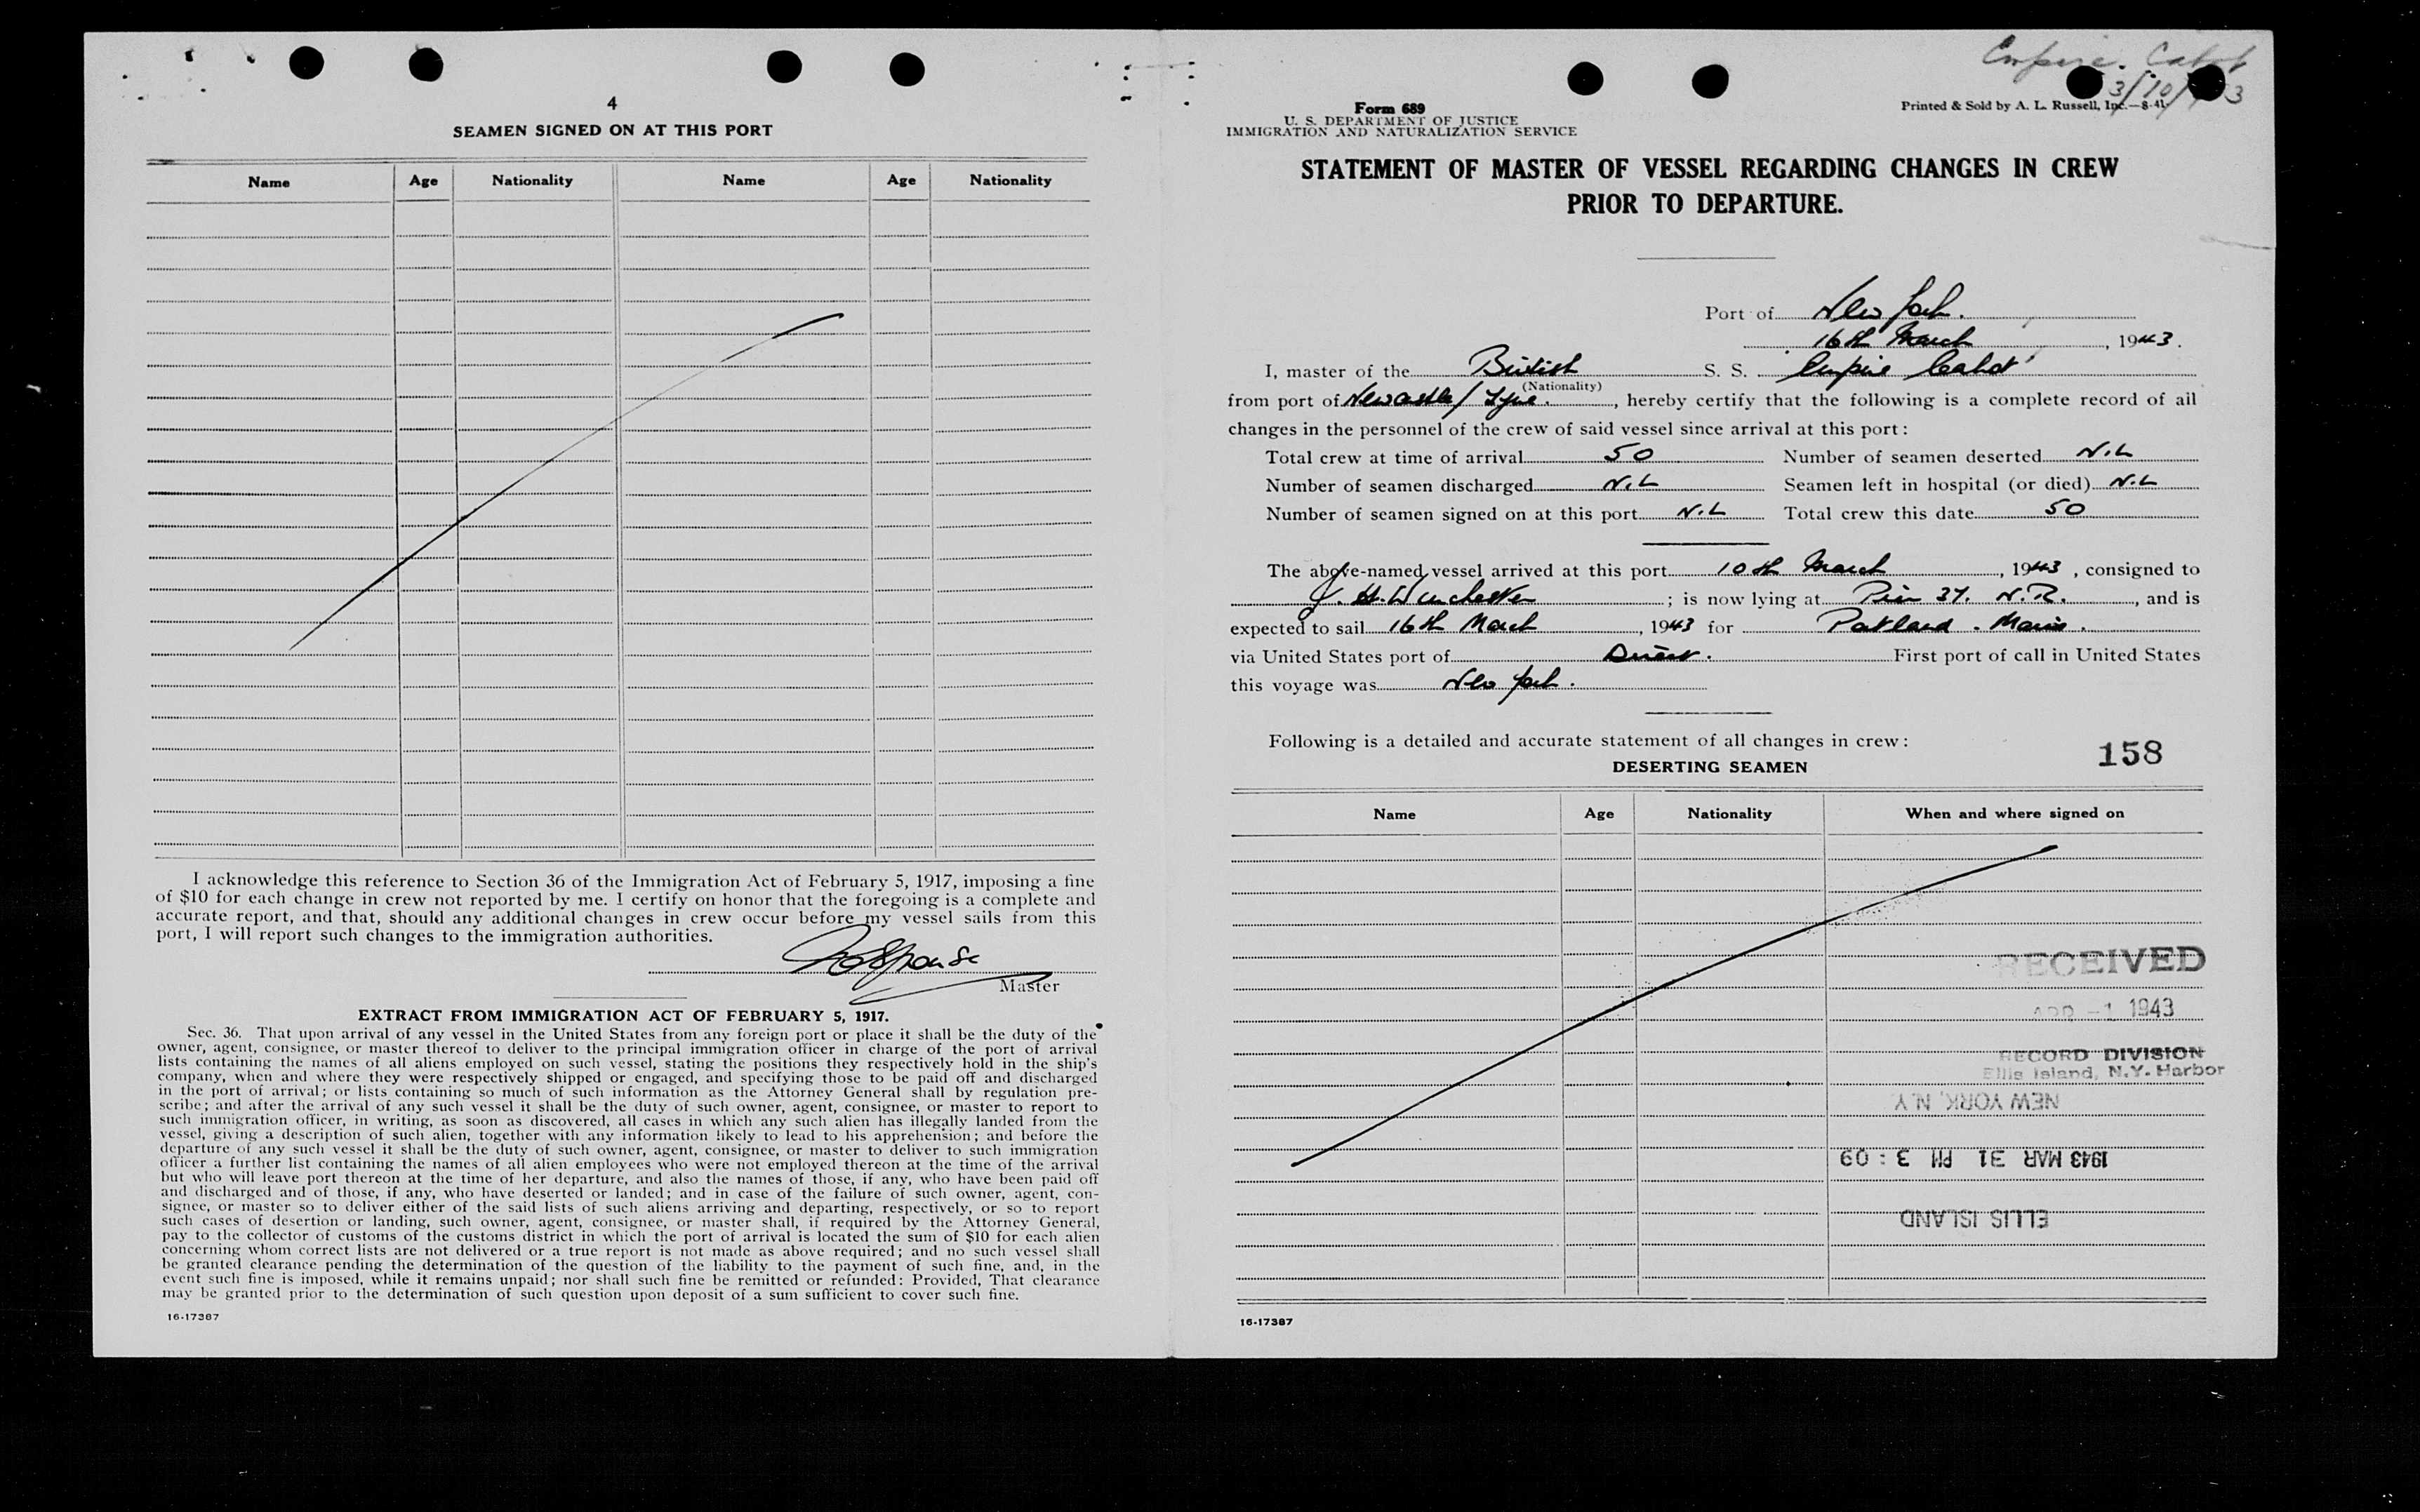 4
SEAMEN SIGNED ON AT THIS PORT
Name Age Nationality Name Age Nationality
I acknowledge this reference to Section 36 of the Immigration Act of February 5, 1917, imposing a fine
of $10 for each change in crew not reported by me. I certify on honor that the foregoing is a complete and
accurate report, and that, should any additional changes in crew occur before my vessel sails from this
port, I will report such changes to the immigration authorities.
Master
EXTRACT FROM IMMIGRATION ACT OF FEBRUARY 5, 1917.
Sec. 36. That upon arrival of any vessel in the United States from any foreign port or place it shall be the duty of the
owner, agent, consignee, or master thereof to deliver to the principal immigration officer in charge of the port of arrival
lists containing the names of all aliens employed on such vessel, stating the positions they respectively hold in the ship's
company, when and where they were respectively shipped or engaged, and specifying those to be paid off and discharged
in the port of arrival; or lists containing so much of such information as the Attorney General shall by regulation pre-
scribe; and after the arrival of any such vessel it shall be the duty of such owner, agent, consignee, or master to report to
such immigration officer, in writing, as soon as discovered, all cases in which any such alien has illegally landed from the
vessel, giving a description of such alien, together with any information likely to lead to his apprehension; and before the
departure of any such vessel it shall be the duty of such owner, agent, consignee, or master to deliver to such immigration
officer a further list containing the names of all alien employees who were not employed thereon at the time of the arrival
but who will leave port thereon at the time of her departure, and also the names of those, if any, who have been paid off
and discharged and of those, if any, who have deserted or landed; and in case of the failure of such owner, agent, con-
signee, or master so to deliver either of the said lists of such aliens arriving and departing, respectively, or so to report
such cases of desertion or landing, such owner, agent, consignee, or master shall, if required by the Attorney General,
pay to the collector of customs of the customs district in which the port of arrival is located the sum of $10 for each alien
concerning whom correct lists are not delivered or a true report is not made as above required; and no such vessel shall
be granted clearance pending the determination of the question of the liability to the payment of such fine, and, in the
event such fine is imposed, while it remains unpaid; nor shall such fine be remitted or refunded: Provided, That clearance
may be granted prior to the determination of such question upon deposit of a sum sufficient to cover such fine.
16-17387
Empire Cabot
3/10/43
Form 689
U. S. DEPARTMENT OF JUSTICE
IMMIGRATION AND NATURALIZATION SERVICE
Printed & Sold by A. L. Russell, Inc.—8-41
STATEMENT OF MASTER OF VESSEL REGARDING CHANGES IN CREW
PRIOR TO DEPARTURE.
Port of New York.
16th March, 1943.
I, master of the British S. S. Empire Cabot
(Nationality)
from port of Newcastle/Tyne., hereby certify that the following is a complete record of all
changes in the personnel of the crew of said vessel since arrival at this port:
Total crew at time of arrival 50 Number of seamen deserted NiL
Number of seamen discharged NiL Seamen left in hospital (or died) NiL
Number of seamen signed on at this port NiL Total crew this date 50
The above-named vessel arrived at this port 10th March, 1943, consigned to
J. H. Winchester; is now lying at Pier 37. N.R., and is
expected to sail 16th March, 1943 for Portland. Maine.
via United States port of Direct. First port of call in United States
this voyage was New York.
Following is a detailed and accurate statement of all changes in crew:
158
DESERTING SEAMEN
Name Age Nationality When and where signed on
RECEIVED
APR -1 1943
RECORD DIVISION
Ellis Island, N.Y. Harbor
NEW YORK, N.Y.
1943 MAR 31 PM 3:09
ELLIS ISLAND
16-17387